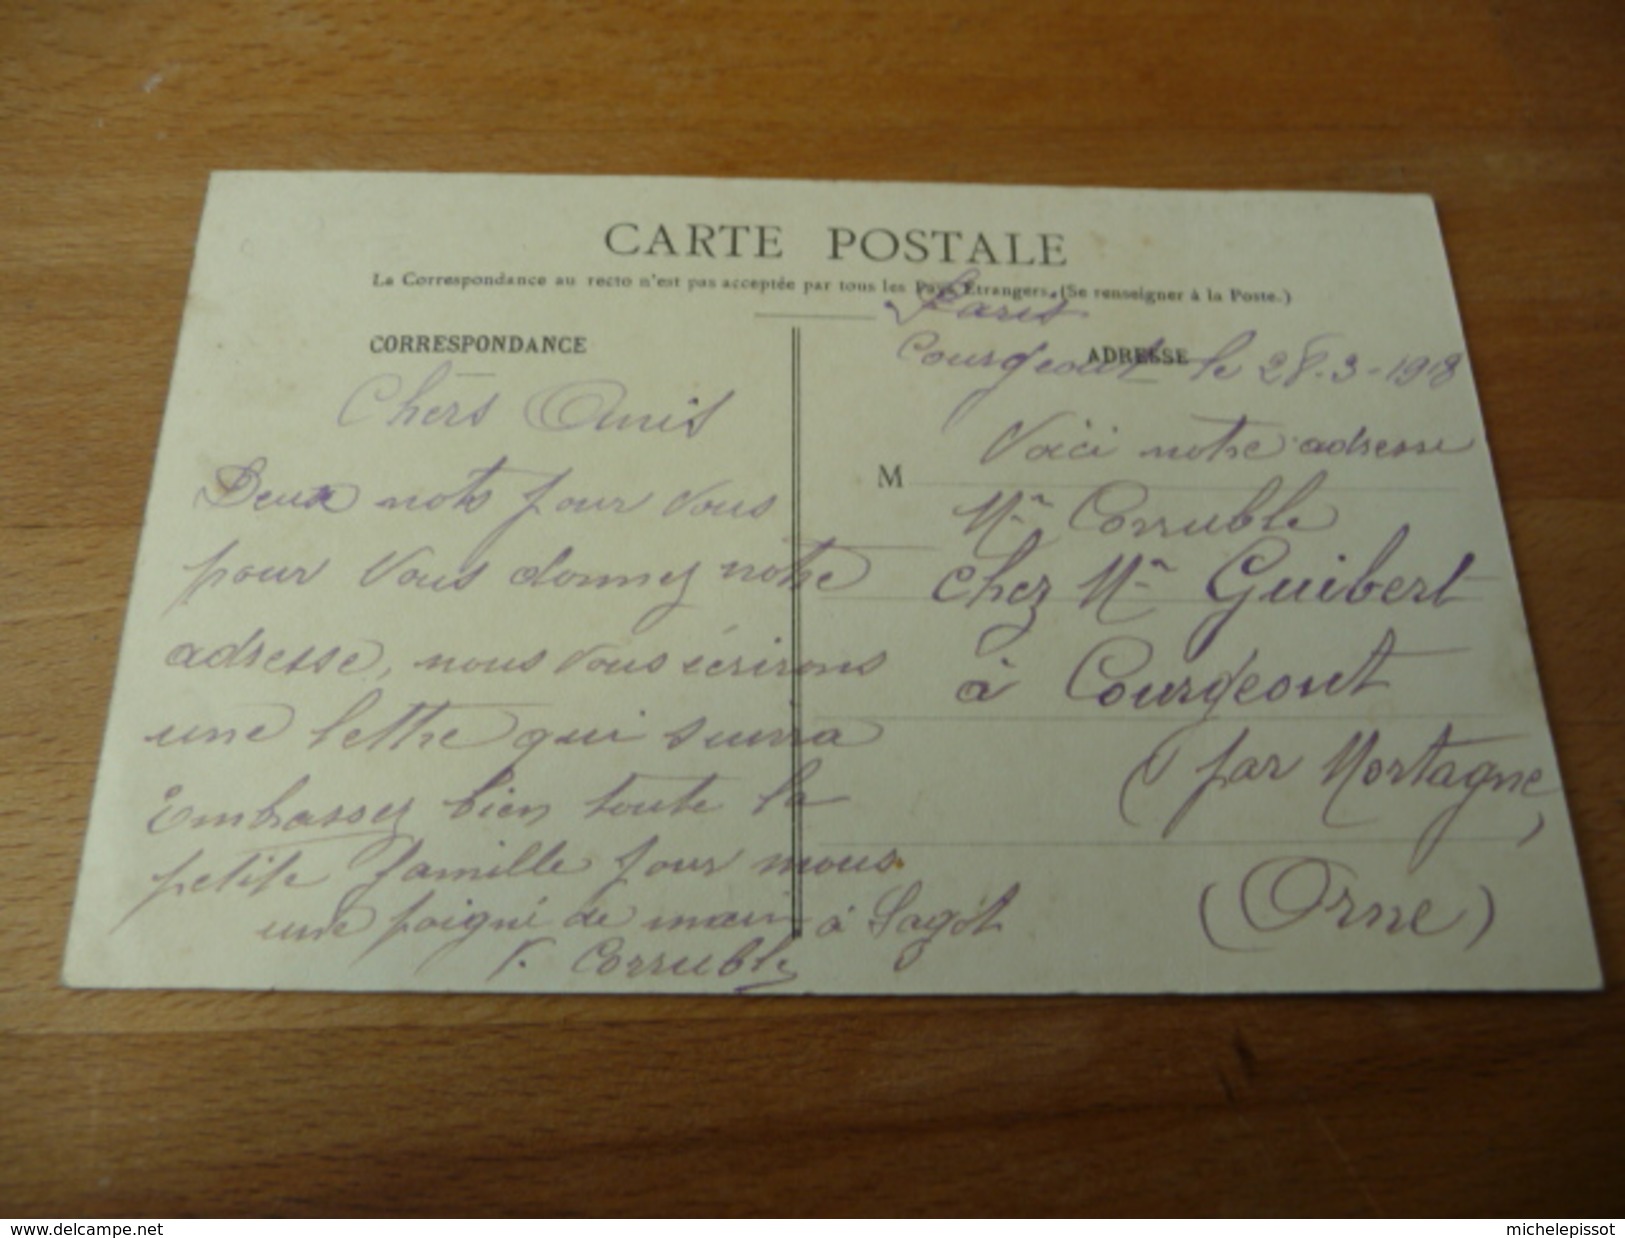 CARTE POSTALE
La Correspondance au recto n'est pas acceptée par tous les Pays Etrangers. (Se renseigner à la Poste.)
CORRESPONDANCE
Chers Amis
Deux mots pour Vous
pour Vous donnez notre
adresse, nous vous écrirons
une lettre qui suivra
Embrassez bien toute la
petite famille pour nous
une poigné de main à Sagot
V. Corruble
ADRESSE
Paris
Courgeout le 28.3-1918
Voici notre adresse
M
Mr Corruble
chez Mr Guibert
à Courgeout
par Mortagne
(Orne)
delcampe.net
michelepissot